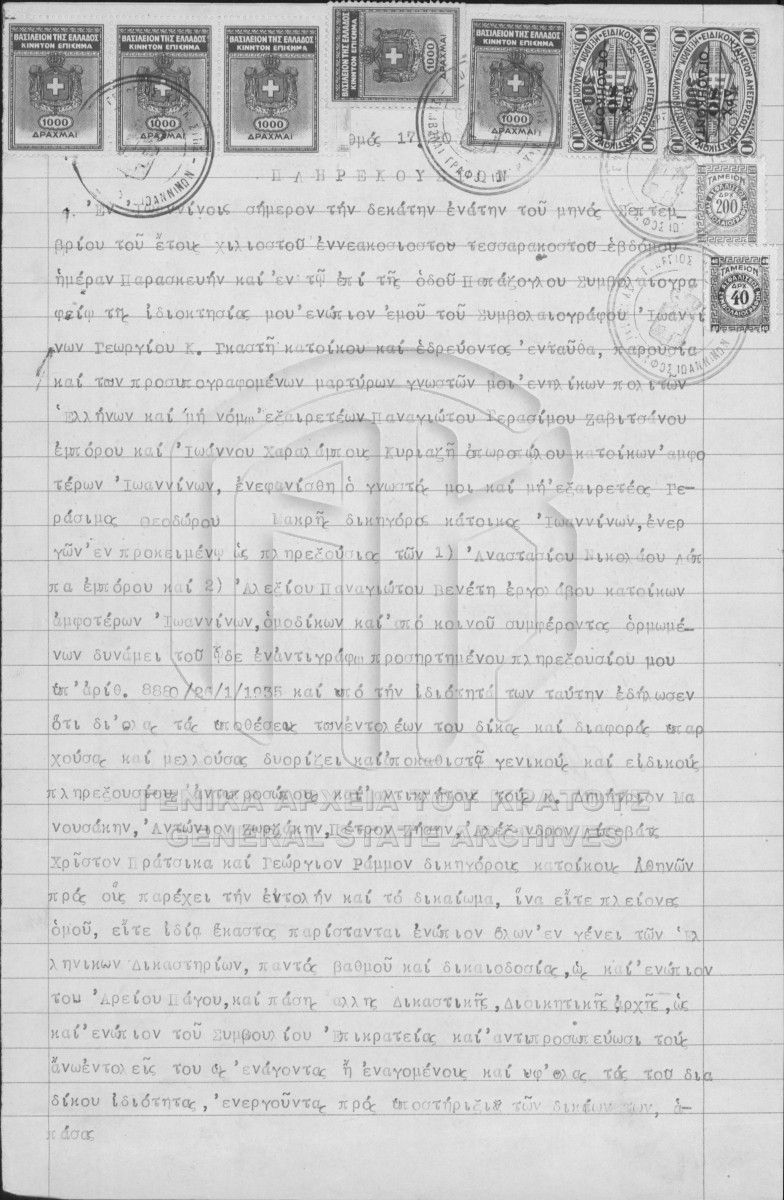 ΒΑΣΙΛΕΙΟΝ ΤΗΣ ΕΛΛΑΔΟΣ
ΚΙΝΗΤΟΝ ΕΠΙΣΗΜΑ
1000
ΔΡΑΧΜΑΙ
ΒΑΣΙΛΕΙΟΝ ΤΗΣ ΕΛΛΑΔΟΣ
ΚΙΝΗΤΟΝ ΕΠΙΣΗΜΑ
1000
ΔΡΑΧΜΑΙ
ΒΑΣΙΛΕΙΟΝ ΤΗΣ ΕΛΛΑΔΟΣ
ΚΙΝΗΤΟΝ ΕΠΙΣΗΜΑ
1000
ΔΡΑΧΜΑΙ
ΒΑΣΙΛΕΙΟΝ ΤΗΣ ΕΛΛΑΔΟΣ
ΚΙΝΗΤΟΝ ΕΠΙΣΗΜΑ
1000
ΔΡΑΧΜΑΙ
ΒΑΣΙΛΕΙΟΝ ΤΗΣ ΕΛΛΑΔΟΣ
ΚΙΝΗΤΟΝ ΕΠΙΣΗΜΑ
1000
ΔΡΑΧΜΑΙ
ΤΑΜΕΙΟΝ
ΔΡΧ
200
ΤΑΜΕΙΟΝ
ΔΡΧ
40
θμός 17.
Ἐν Ἰωαννίνοις σήμερον τήν δεκάτην ἐνάτην τοῦ μηνός Σεπτεμ-
βρίου τοῦ ἔτους χιλιοστοῦ ἐννεακοσιοστου τεσσαρακοστοῦ ἑβδόμου
ἡμέραν Παρασκευήν καί ἐν τῷ ἐπί τῆς ὁδοῦ Παπάζογλου Συμβολαιογρα
φείῳ τῆς ἰδιοκτησίας μου ἐνώπιον ἐμοῦ τοῦ Συμβολαιογράφου Ἰωαννί
νων Γεωργίου Κ. Γκαστῆ κατοίκου καί ἑδρεύοντος ἐνταῦθα, παρουσία
καί των προσυπογραφομένων μαρτύρων γνωστῶν μοι ἐνηλίκων πολιτῶν
Ἑλλήνων καί μή νόμῳ ἐξαιρετέων Παναγιώτου Γερασίμου Ζαβιτσάνου
ἐμπόρου καί Ἰωάννου Χαραλάμπους Κυριαζῆ ὀπωροπώλου κατοίκων ἀμφο
τέρων Ἰωαννίνων, ἐνεφανίσθη ὁ γνωστός μοι καί μή ἐξαιρετέος Γε-
ράσιμος Θεοδώρου Μακρῆς δικηγόρος κάτοικος Ἰωαννίνων, ἐνερ
γῶν ἐν προκειμένῳ ὡς πληρεξούσιος τῶν 1) Ἀναστασίου Νικολάου Λάπ
πα ἐμπόρου καί 2) Ἀλεξίου Παναγιώτου Βενέτη ἐργολάβου κατοίκων
ἀμφοτέρων Ἰωαννίνων, ὁμοδίκων καί ἀπό κοινοῦ συμφέροντος ὁρμωμέ-
νων δυνάμει τοῦ ὧδε ἐν ἀντιγράφῳ προσηρτημένου πληρεξουσίου μου
ὑπ' ἀρίθ. καί ὑπό τήν ἰδιότητά των ταύτην ἐδήλωσεν
ὅτι δι' ὅλας τάς ὑποθέσεις τῶν ἐντολέων του δίκας καί διαφοράς ὑπαρ
χούσας καί μελλούσας δυορίζει καί ἀποκαθιστᾷ γενικούς καί εἰδικούς
πληρεξουσίους ἀντιπροσώπους καί ἀντικλήτους τούς κ. Δημήτριον Μα
νουσάκην, Ἀντώνιον Πέτρον Ζήσην, Ἀλέξανδρον
Χρῖστον Πράτσικα καί Γεώργιον Ράμμον δικηγόρους κατοίκους Ἀθηνῶν
πρός οὕς παρέχει τήν ἐντολήν καί τό δικαίωμα, ἵνα εἴτε πλείονες
ὁμοῦ, εἴτε ἰδίᾳ ἕκαστος παρίστανται ἐνώπιον ὅλων ἐν γένει τῶν Ἑλ
ληνικων Δικαστηρίων, παντός βαθμοῦ καί δικαιοδοσίας, ὡς καί ἐνώπιον
του Ἀρείου Πάγου, καί πάσης ἄλλης Δικαστικῆς, Διοικητικῆς ἀρχῆς, ὡς
καί ἐνώπιον τοῦ Συμβουλίου Ἐπικρατείας καί ἀντιπροσωπεύωσι τούς
ἄνω ἐντολεῖς του ὡς ἐνάγοντας ἤ ἐναγομένους καί ὑφ' ὅλας τάς τοῦ δια
δίκου ἰδιότητας, ἐνεργοῦντες πρός ὑποστήριξιν τῶν δικαίων των, ἁ-
πάσας
ΓΕΝΙΚΑ ΑΡΧΕΙΑ ΤΟΥ ΚΡΑΤΟΥΣ
GENERAL STATE ARCHIVES